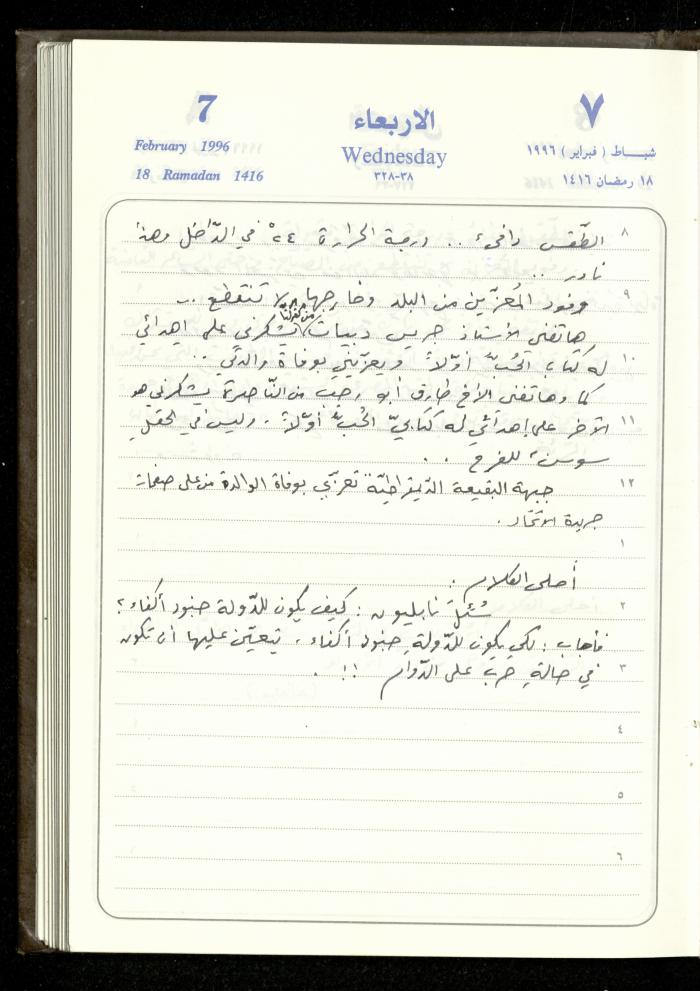 7
الاربعاء
٧
February 1996
Wednesday
شبـــاط ( فبراير ) ١٩٩٦
18 Ramadan 1416
٣٨-٣٢٨
١٨ رمضان ١٤١٦
٨ الطّقس دافئ .. درجة الحرارة ٢٤° في الدّاخل وهذا
نادر ..
٩ وفود المُعزّين من البلد وخارجها لا تنقطع ..
هاتفني الأستاذ جريس دبيات يشكرني على إهدائي
١٠ له كتاب الحُبّ أوّلاً ويعزّيني بوفاة والدتي ..
كما وهاتفني الأخ طارق أبو رجب من النّاصرة يشكرني هو
١١ الآخر على إهدائي له كتابيّ الحُبّ أوّلاً . وليس في الحقلِ
سوسن للفرح ..
١٢ جبهة البقيعة الدّيمقراطيّة تعزّي بوفاة الوالدة من على صفحات
جريدة الاتّحاد .
١
أحلى الكلام :
٢ سُئِلَ نابليون : كيف يكون للدّولة جنود أكفاء ؟
فأجاب : لكي يكون للدّولةِ جنود أكفاء ، يتعيّن عليها أن تكون
٣ في حالةِ حرب على الدّوام !! .
٤
٥
٦